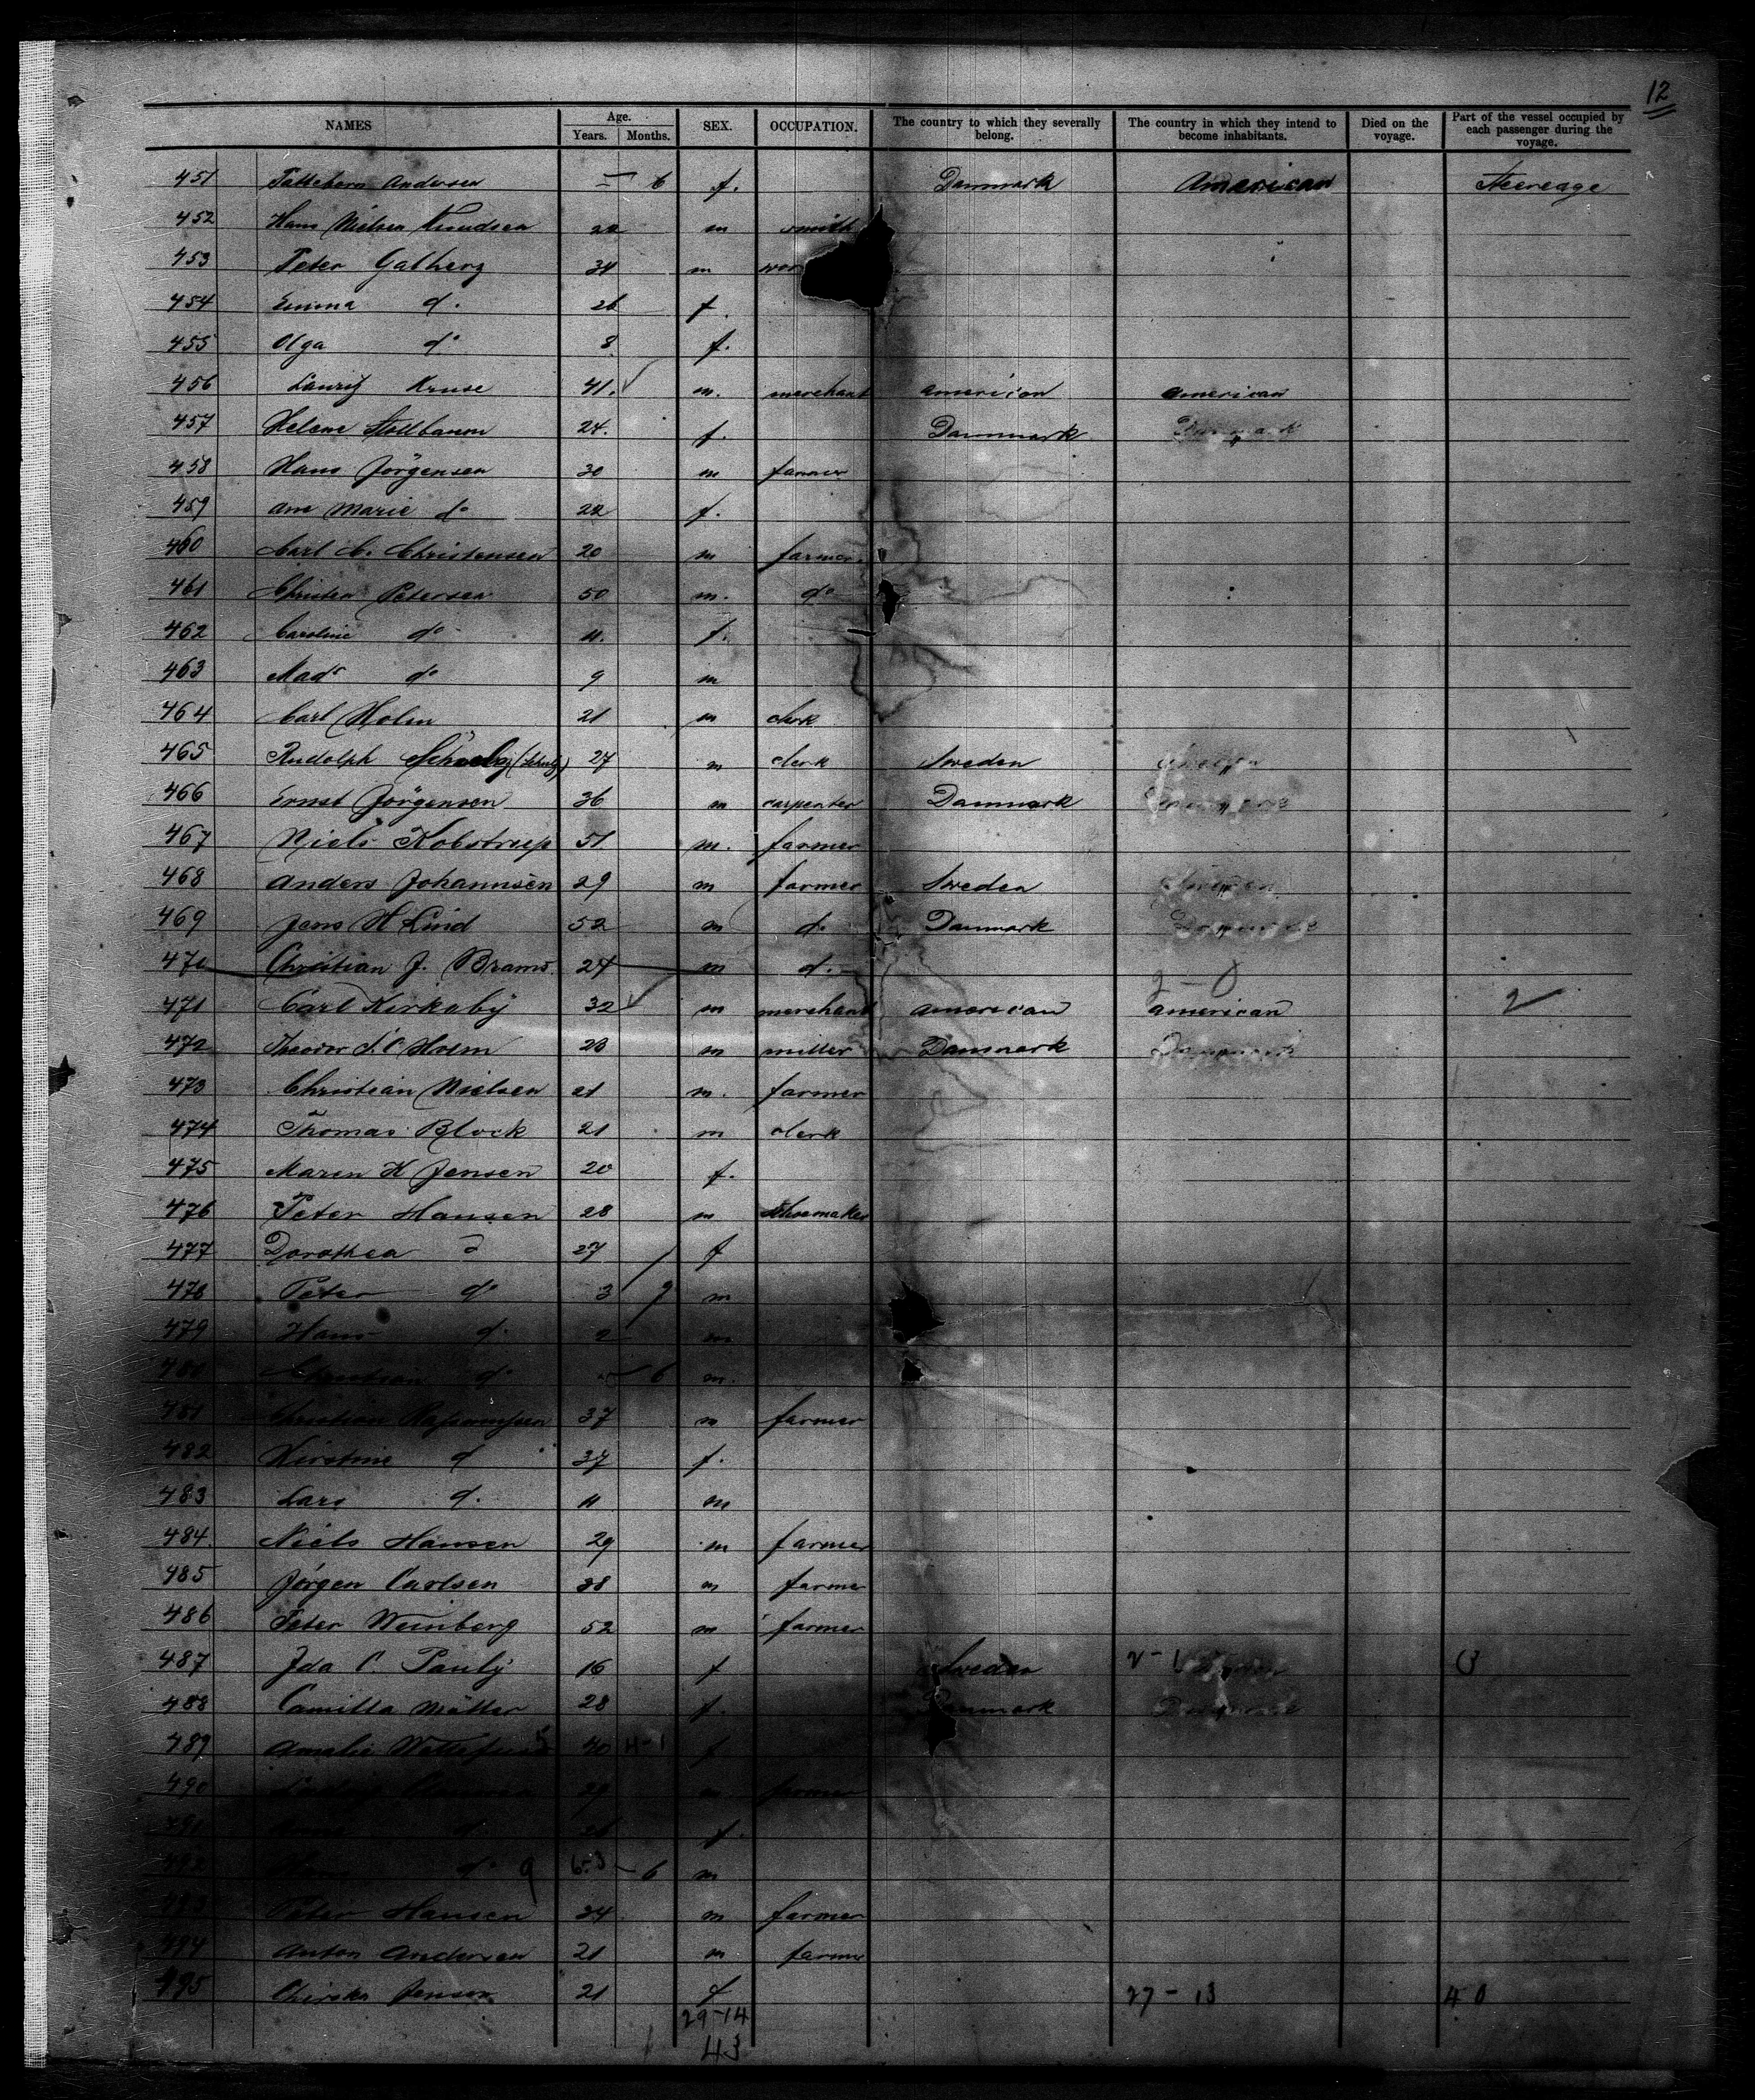 12
NAMES Age. Years. Months. SEX. OCCUPATION. The country to which they severally belong. The country in which they intend to become inhabitants. Died on the voyage. Part of the vessel occupied by each passenger during the voyage.
451 Andersen 6 f. Danmark American Steereage
452 Hans Nielsen Knudsen 22 m smith
453 Peter Galberg 34 m
454 Emma do 26 f.
455 Olga do 8 f.
456 Lauritz Kruse 41. m. merchant american american
457 Helene Stollbaum 24. f. Danmark
458 Hans Jörgensen 30 m farmer
459 Ane Marie do 22 f.
460 Carl C. Christensen 20 m farmer.
461 Christen Petersen 50 m. do
462 Caroline do 11. f.
463 Mads do 9 m
464 Carl Holm 21 m clerk
465 Rudolph 27 m clerk Sweden
466 Ernst Jörgensen 36 m carpenter Danmark
467 Niels Kobstrup 51 m. farmer
468 Anders Johannsen 29 m farmer Sweden
469 Jens H Lind 52 m do Danmark
470 Christian J. Brams 24 m d. 2-0
471 Carl Kirkeby 32 m merchant american american 2
472 Theodor Holm 23 m miller Danmark
473 Christian Nielsen 21 m. farmer
474 Thomas Block 21 m clerk
475 Maren K Jensen 20 f.
476 Peter Hansen 28 m Shoemaker
477 Dorothea d 27 f
478 Peter do 3 9 m
479 Hans d. 2 m
480 Christian do 6 m.
481 Christian Rasmussen 37 m farmer
482 Kirstine d 37 f.
483 Lars d. 11 m
484. Niels Hansen 29 m farmer
485 Jörgen Carlsen 28 m farmer
486 Peter Weinberg 52 m farmer
487 Ida C. Pauly 16 f Sweden
488 Camilla Müller 28 f. Danmark
489 Amalie 40 4-1 f
490 29 m farmer
491 21 f.
492 do 9 6 m
493 Peter Hansen 24 m farmer
494 Anton Andersen 21 m farmer
495 Jensen 21 f 27-13 40
29-14
43